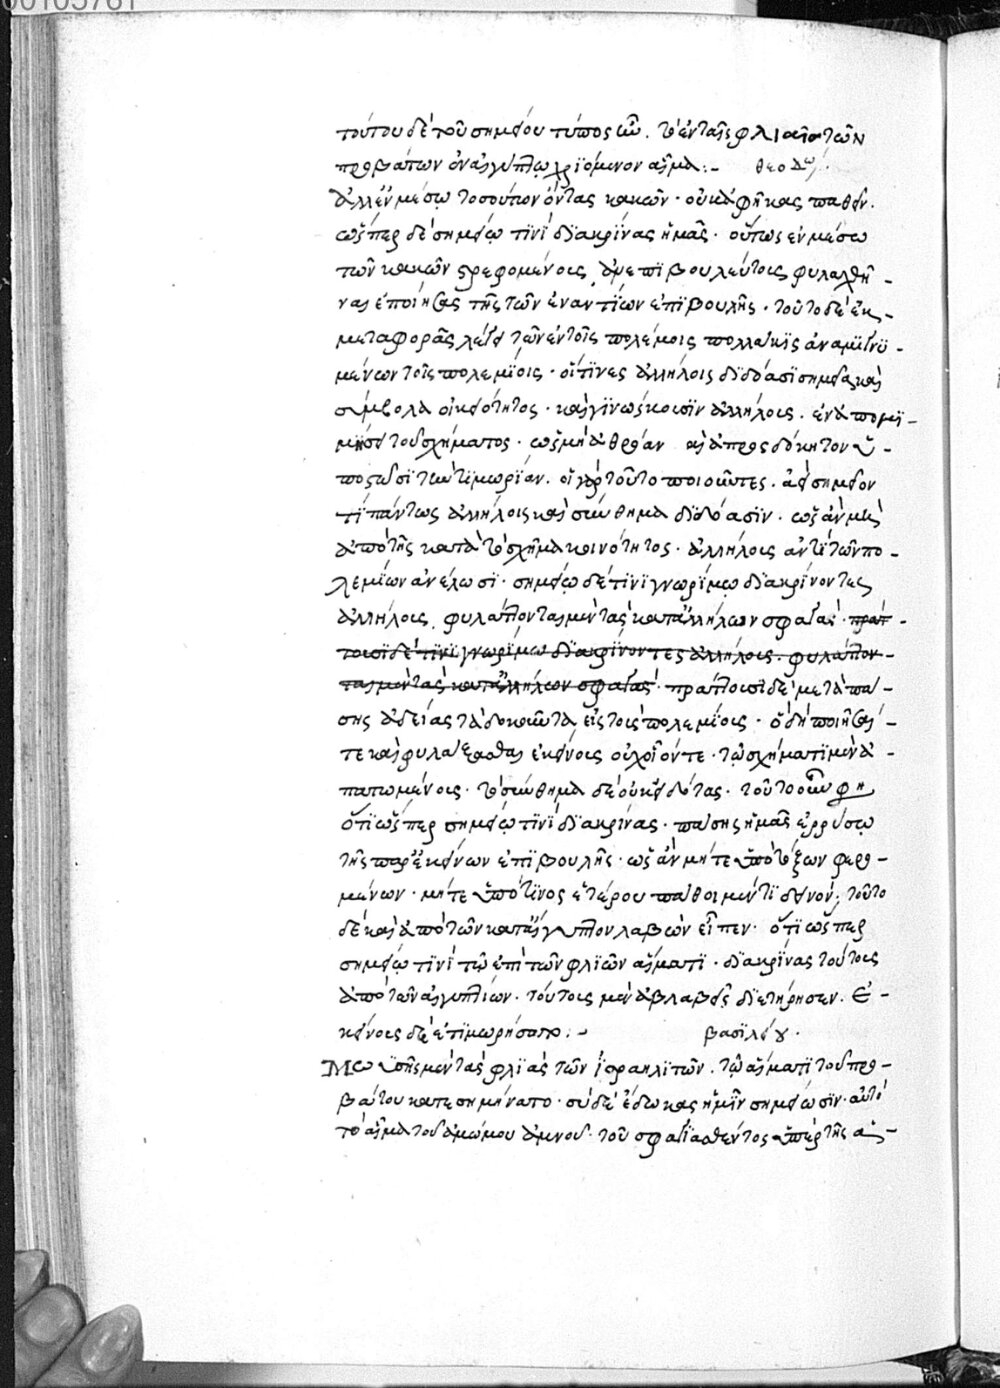 00105761
τούτου δὲ τοῦ σημείου τύπος ὢν. τὸ ἐν ταῖς φλιαῖς τῶν
προβάτων ἐν αἰγύπτῳ χριόμενον αἷμα :- θεοδώ.
ἀλλ' ἐν μέσῳ τοσούτων ὄντας κακῶν · οὐκ ἀφῆκας παθεῖν.
ὥσπερ δὲ σημείῳ τινὶ διακρίνας ἡμᾶς · οὕτως ἐν μέσω
τῶν κακῶν στρεφομένους, ἀνεπιβουλεύτους φυλαχθῆ -
ναι ἐποίησας τῆς τῶν ἐναντίων ἐπιβουλῆς · τοῦτο δὲ ἐκ -
μεταφορᾶς λέγει τῶν ἐν τοῖς πολέμοις πολλάκις ἀναμιγνυ -
μένων τοῖς πολεμίοις · οἵτινες ἀλλήλοις διδόασι σημεῖα καὶ
σύμβολα οἰκειότητος · καὶ γινώσκουσιν ἀλλήλους. ἐν ἀπομι -
μήσει τοῦ σχήματος · ὡς μὴ ἀθρόαν καὶ ἀπροσδόκητον ὑ -
ποστῶσι τὴν τιμωρίαν. οἱ γὰρ τοῦτο ποιοῦντες. ἀεὶ σημεῖον
τί πάντως ἀλλήλοις καὶ σύνθημα διδόασιν · ὡς ἂν μὴ
ἀπὸ τῆς κατὰ τὸ σχῆμα κοινότητος · ἀλλήλους ἀντὶ τῶν πο -
λεμίων ἀνέλωσι · σημείῳ δέ τινι γνωρίμῳ διακρίνοντες
ἀλλήλους, φυλάττονται μὲν τὰς κατ' ἀλλήλων σφαγὰς · πράτ -
τουσι δέ τινι γνωρίμω διακρίνοντες ἀλλήλους. φυλάττον -
ται μὲν τὰς κατ' ἀλλήλων σφαγὰς · πράττουσι δὲ μετὰ πά -
σης ἀδείας τὰ δοκοῦντα εἰς τοὺς πολεμίους · ὃ δὴ ποιῆσαί -
τε καὶ φυλάξασθαι ἐκείνοις οὐχ οἷόν τε · τῷ σχήματι μὲν ἀ -
πατωμένοις · τὸ σύνθημα δὲ οὐκ εἰδότας · τοῦτο οὖν φη
ὅτι ὥσπερ σημείῳ τινὶ διακρίνας · πάσης ἡμᾶς ἐρρύσω
τῆς παρ' ἐκείνων ἐπιβουλῆς · ὡς ἂν μήτε ὑπὸ τόξων φερο -
μένων · μήτε ὑπό τινος ἑτέρου πάθοιμέν τι δεινόν · τοῦτο
δὲ καὶ ἀπὸ τῶν κατ' αἴγυπτον λαβὼν εἶπεν · ὅτι ὥσπερ
σημείῳ τινὶ τῷ ἐπὶ τῶν φλιῶν αἵματι · διακρίνας τούτους
ἀπὸ τῶν αἰγυπτίων · τούτους μὲν ἀβλαβεῖς διετήρησεν. ἐ -
κείνους δὲ ἐτιμωρήσατο :- βασιλείου ·
Μωϋσῆς μὲν τὰς φλιὰς τῶν ἰσραηλιτῶν. τῷ αἵματι τοῦ προ -
βάτου κατεσημήνατο · σὺ δὲ ἔδωκας ἡμῖν σημείωσιν · αὐτὸ
τὸ αἷμα τοῦ ἀμώμου ἀμνοῦ · τοῦ σφαγιασθέντος ὑπὲρ τῆς ἁ -